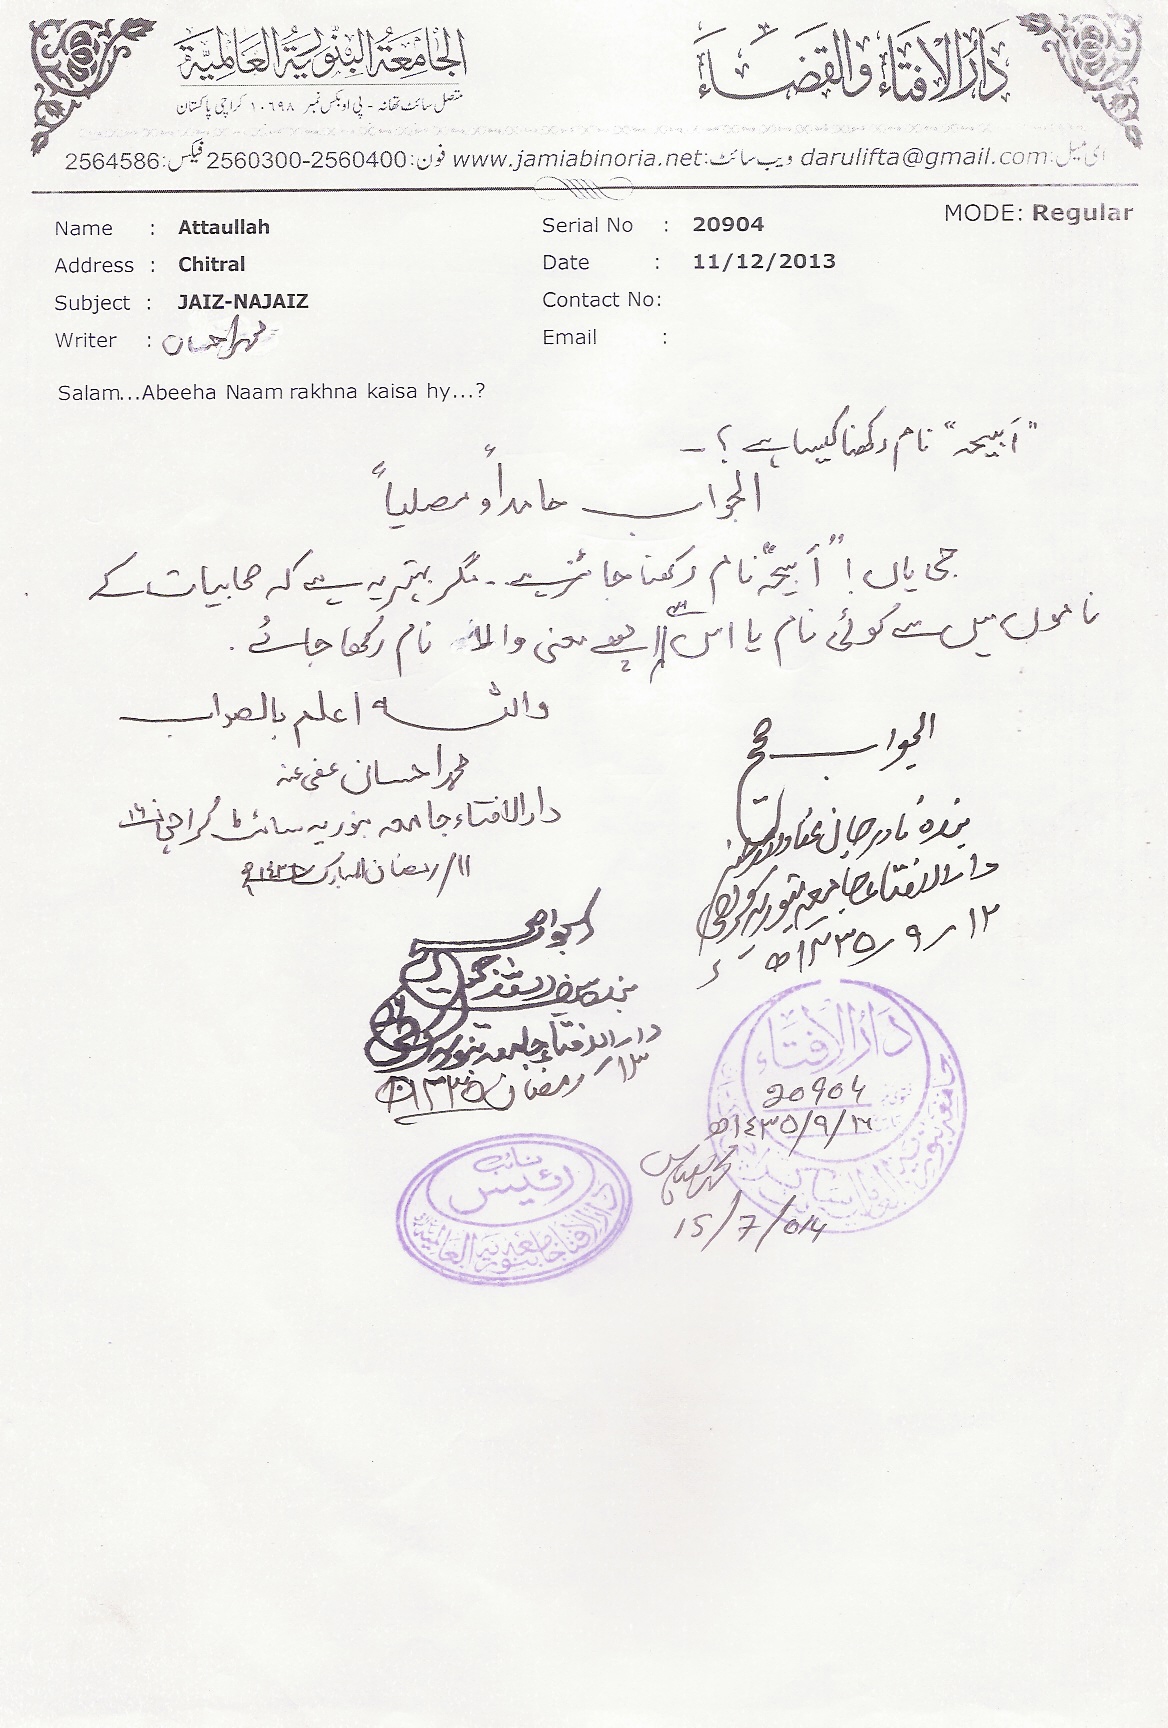 الجامعة البنورية العالمية
دار الافتاء والقضاء
متصل سائٹ تھانہ - پی او بکس نمبر ۱۰۶۹۸ کراچی پاکستان
ای میل: darulifta@gmail.com ویب سائٹ: www.jamiabinoria.net فون: 2560300-2560400 فیکس: 2564586
MODE: Regular
Name : Attaullah
Serial No : 20904
Address : Chitral
Date : 11/12/2013
Subject : JAIZ-NAJAIZ
Contact No:
Writer : محمد احسان
Email :
Salam...Abeeha Naam rakhna kaisa hy...?
"اَبیحہ" نام رکھنا کیسا ہے؟۔
الجواب حامداً و مصلیاً
جی ہاں! "اَبیحہ" نام رکھنا جائز ہے۔ مگر بہتر یہ ہے کہ صحابیات کے
ناموں میں سے کوئی نام یا اس سے اچھے معنی والا نام رکھا جائے۔
واللہ اعلم بالصواب
محمد احسان عفی عنہ
دار الافتاء جامعہ بنوریہ سائٹ کراچی نمبر ۱۶
۱۱/رمضان المبارک ۱۴۳۵ھ
الجواب صحیح
بندہ نادر جان عفا اللہ عنہ
دار الافتاء جامعہ بنوریہ کراچی
۱۲/۹/۱۴۳۵ھ
الجواب صحیح
بندہ سیف
دار الافتاء جامعہ بنوریہ
۱۳ رمضان ۱۴۳۵ھ
دار الافتاء
20904
۱۴۳۵/۹/۱۶ھ
15/7/014
نائب
رئیس
دار الافتاء جامعہ بنوریہ العالمیہ